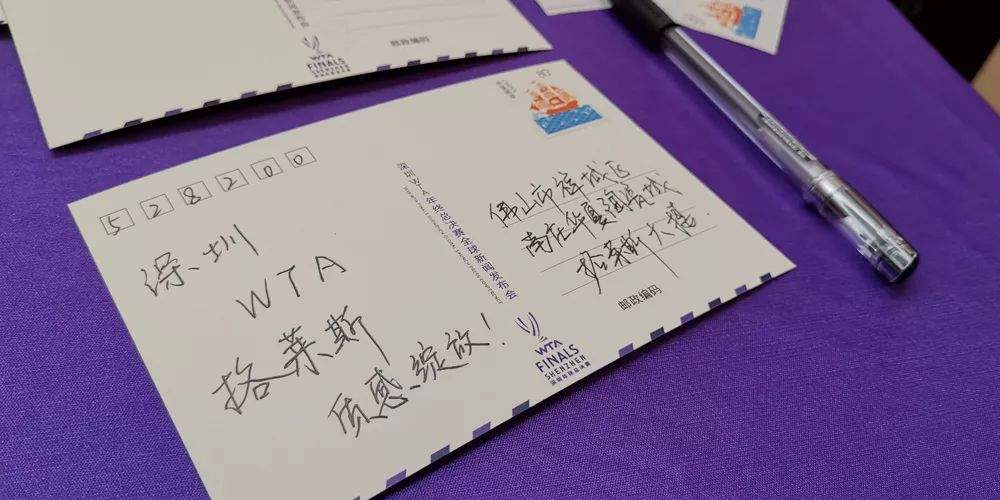 邮政编码
WTA
FINALS
SHENZHEN
528200
深圳
WTA
格莱斯
质感绽放!
深圳WTA年终总决赛全球新闻发布会
80
佛山市禅城区
南庄华夏陶瓷城
格莱斯大楼.
邮政编码
WTA
FINALS
SHENZHEN
深圳年终总决赛